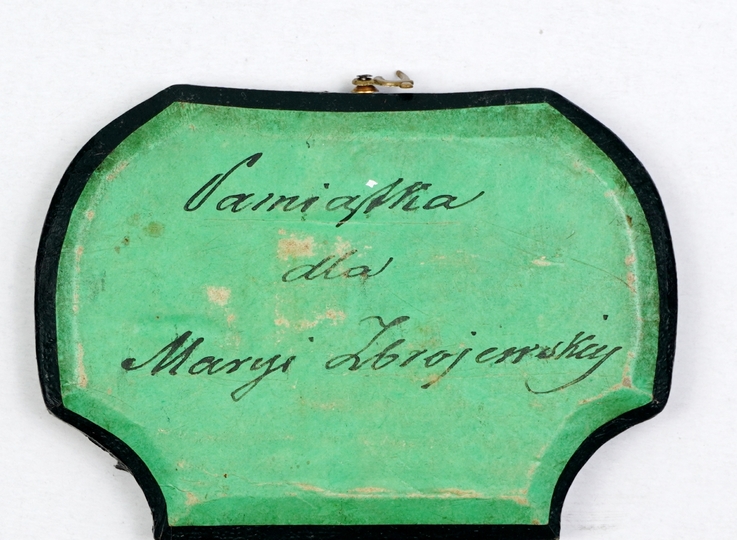 Pamiątka
dla
Maryi Zbrojewskiy